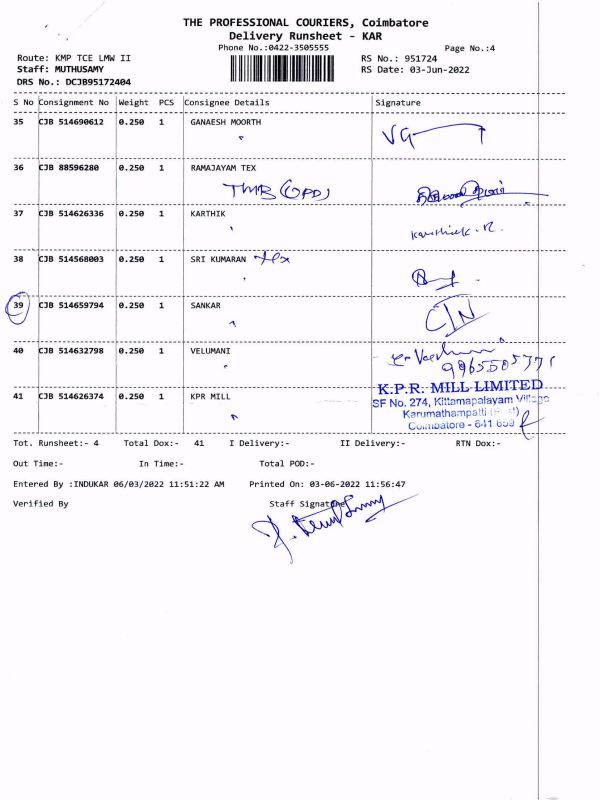 THE PROFESSIONAL COURIERS, Coimbatore
Delivery Runsheet - KAR
Phone No.:0422-3505555
Page No.:4
Route: KMP TCE LMW II
RS No.: 951724
Staff: MUTHUSAMY
RS Date: 03-Jun-2022
DRS No.: DCJB95172404
S No Consignment No Weight PCS Consignee Details Signature
35 CJB 514690612 0.250 1 GANAESH MOORTH
VG
36 CJB 88596280 0.250 1 RAMAJAYAM TEX
TMB (OPD)
37 CJB 514626336 0.250 1 KARTHIK
Karthick. R.
38 CJB 514568003 0.250 1 SRI KUMARAN Tex
39 CJB 514659794 0.250 1 SANKAR
40 CJB 514632798 0.250 1 VELUMANI
9965505771
41 CJB 514626374 0.250 1 KPR MILL
K.P.R. MILL LIMITED
SF No. 274, Kittampalayam Village
Karumathampatti
Coimbatore - 641 659
Tot. Runsheet:- 4 Total Dox:- 41 I Delivery:- II Delivery:- RTN Dox:-
Out Time:- In Time:- Total POD:-
Entered By :INDUKAR 06/03/2022 11:51:22 AM Printed On: 03-06-2022 11:56:47
Verified By Staff Signature